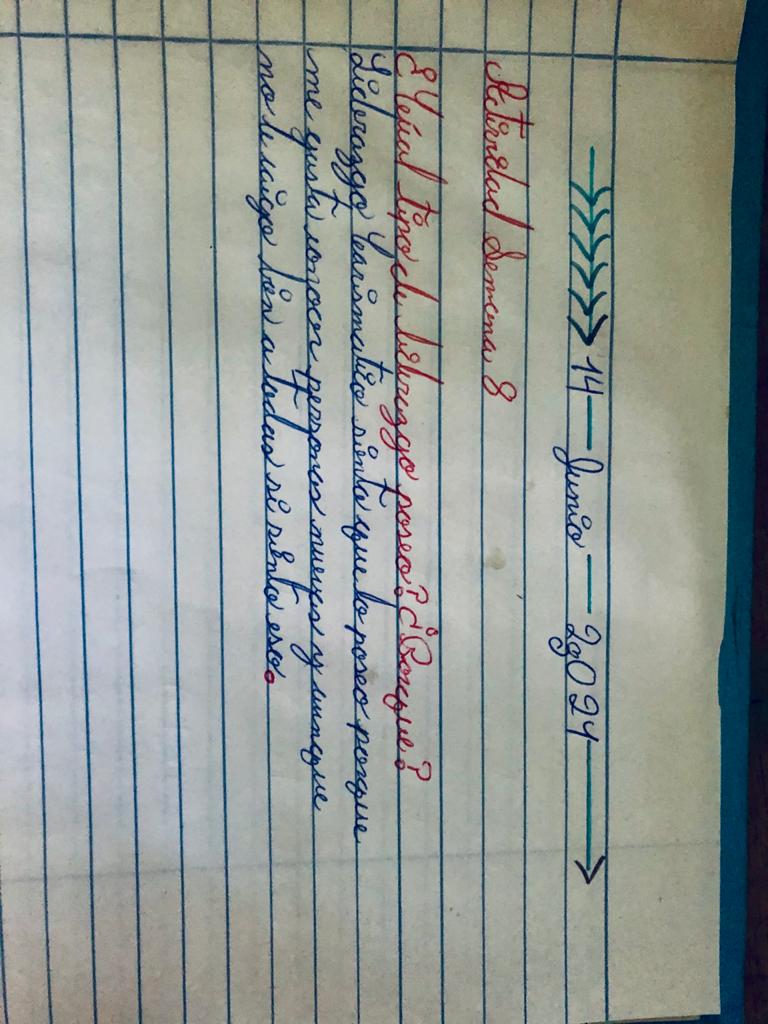 14 — Junio — 2024
Actividad Semana 8
¿Cúal tipo de liderazgo poseo? ¿Porque?
Liderazgo Carismatico siento que lo poseo porque
me gusta conocer personas nuevas y aunque
no le caigo bien a todas si siento eso.